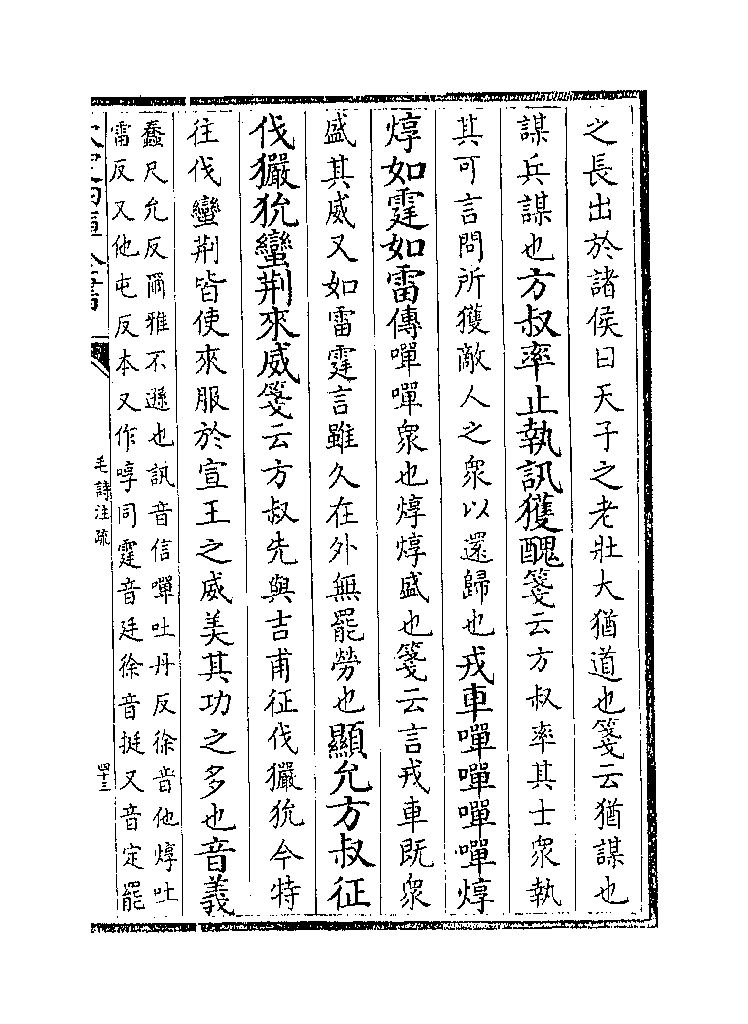 之長出於諸侯曰天子之老壯大猶道也箋云猶謀也
謀兵謀也方叔率止執訊獲醜箋云方叔率其士衆執
其可言問所獲敵人之衆以還歸也戎車嘽嘽嘽嘽焞
焞如霆如雷傳嘽嘽衆也焞焞盛也箋云言戎車既衆
盛其威又如雷霆言雖久在外無罷勞也顯允方叔征
伐玁狁蠻荆來威箋云方叔先與吉甫征伐玁狁今特
往伐蠻荆皆使來服於宣王之威美其功之多也音義
蠢尺允反爾雅不遜也訊音信嘽吐丹反徐音他焞吐
雷反又他屯反本又作啍同霆音廷徐音挺又音定罷
毛詩注疏
四十三